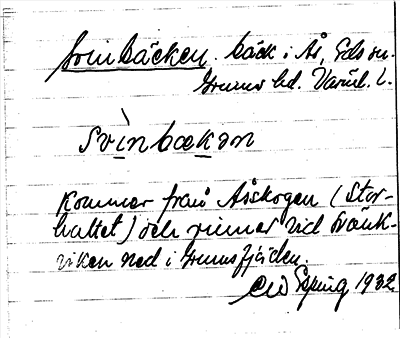 Svinbäcken. bäck i Ås, Eds sn.
Grums hd. Värml. l.
svi̲nbæk̲ən
Kommer från Åskogen (Stor-
hattet) och rinner vid Svänk-
viken ned i Grumsfjärden.
1932